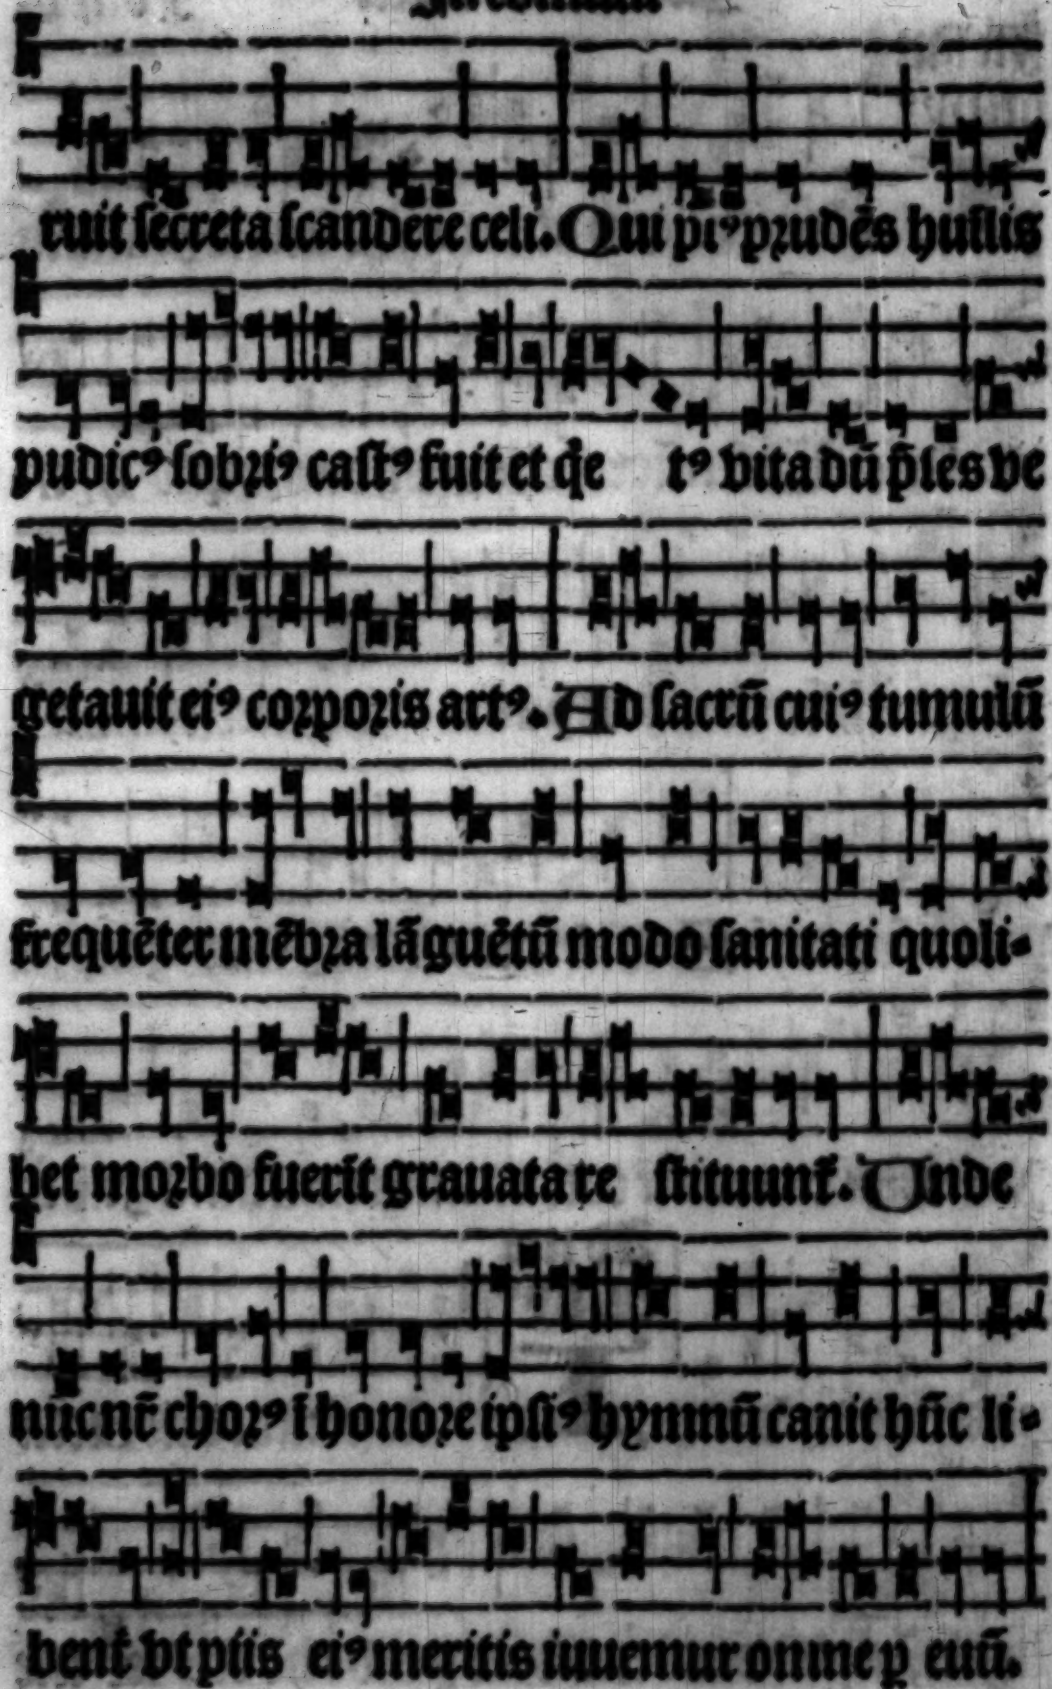 ruit secreta scandere celi. Qui pi⁹ prudēs huīlis
pudic⁹ sobri⁹ cast⁹ fuit et q̇e t⁹ vita dū p̄ses ve
getauit ei⁹ corporis art⁹. Ad sacrū cui⁹ tumulū
frequēter mēbra lāguētū modo sanitati quoli-
bet morbo fuerīt grauata re stituunt̄. Unde
nūc nr̄ chor⁹ ī honore ipsi⁹ hymnū canit hūc li-
bent̄ vt piis ei⁹ meritis iuuemur omne p euū.